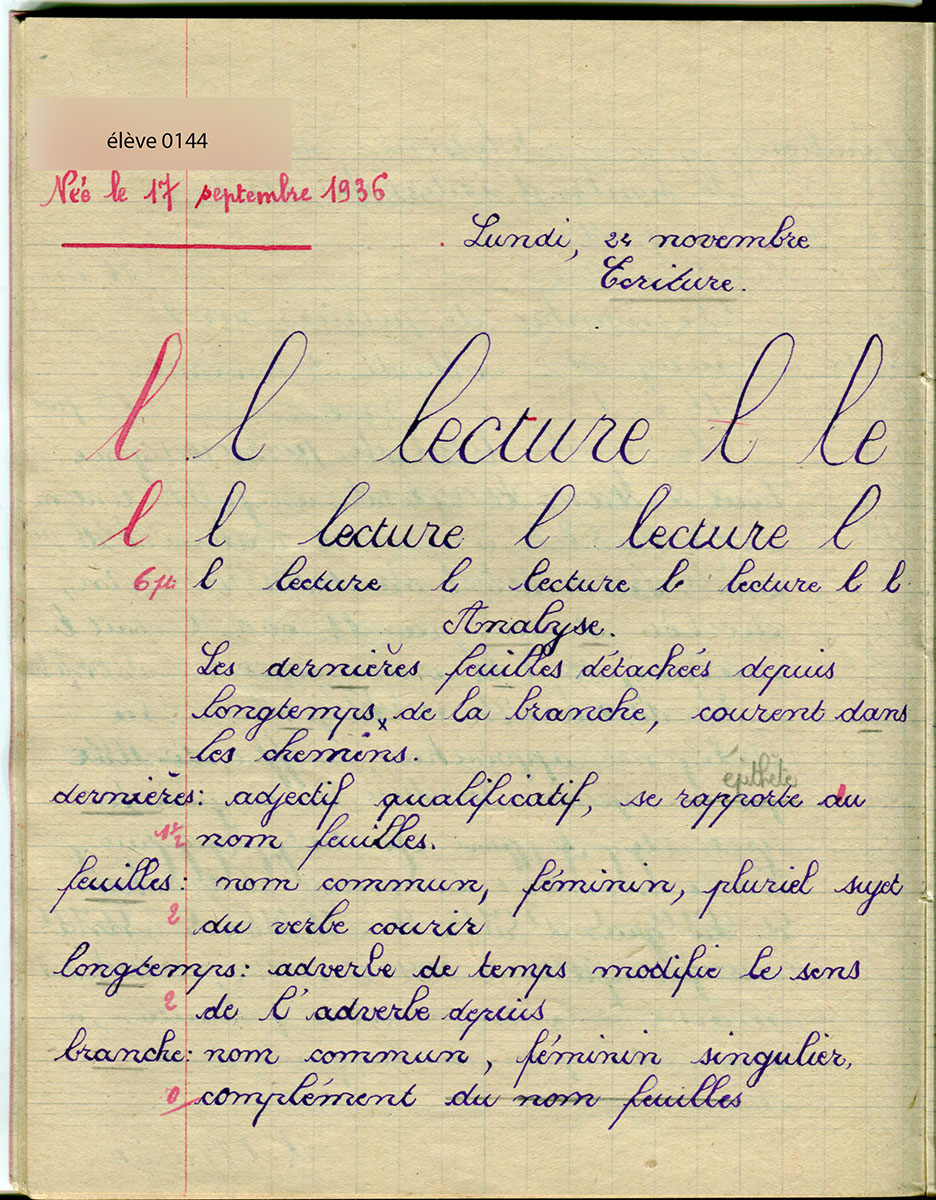 élève 0144
Née le 17 septembre 1936
Lundi, 24 novembre
Ecriture.
l l lecture l le
l l lecture l lecture l
6 l lecture l lecture l lecture l l
Analyse.
Les dernières feuilles détachées depuis
longtemps, de la branche, courent dans
les chemins.
epithète
dernières: adjectif qualificatif, se rapporte du
1½ nom feuilles.
feuilles: nom commun, féminin, pluriel sujet
2 du verbe courir
longtemps: adverbe de temps modifie le sens
2 de l'adverbe depuis
branche: nom commun, féminin singulier,
0 complément du nom feuilles